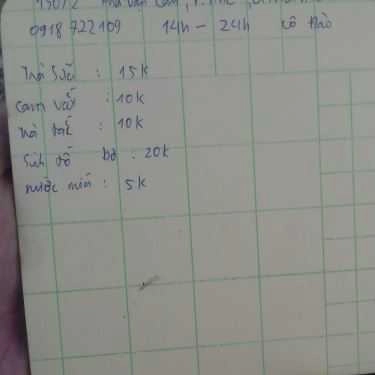 0918 722 109 14h - 24h cô thảo
Trà Sữa : 15k
cam vắt : 10k
trà tắc : 10k
Sinh tố bơ : 20k
nước mía : 5k